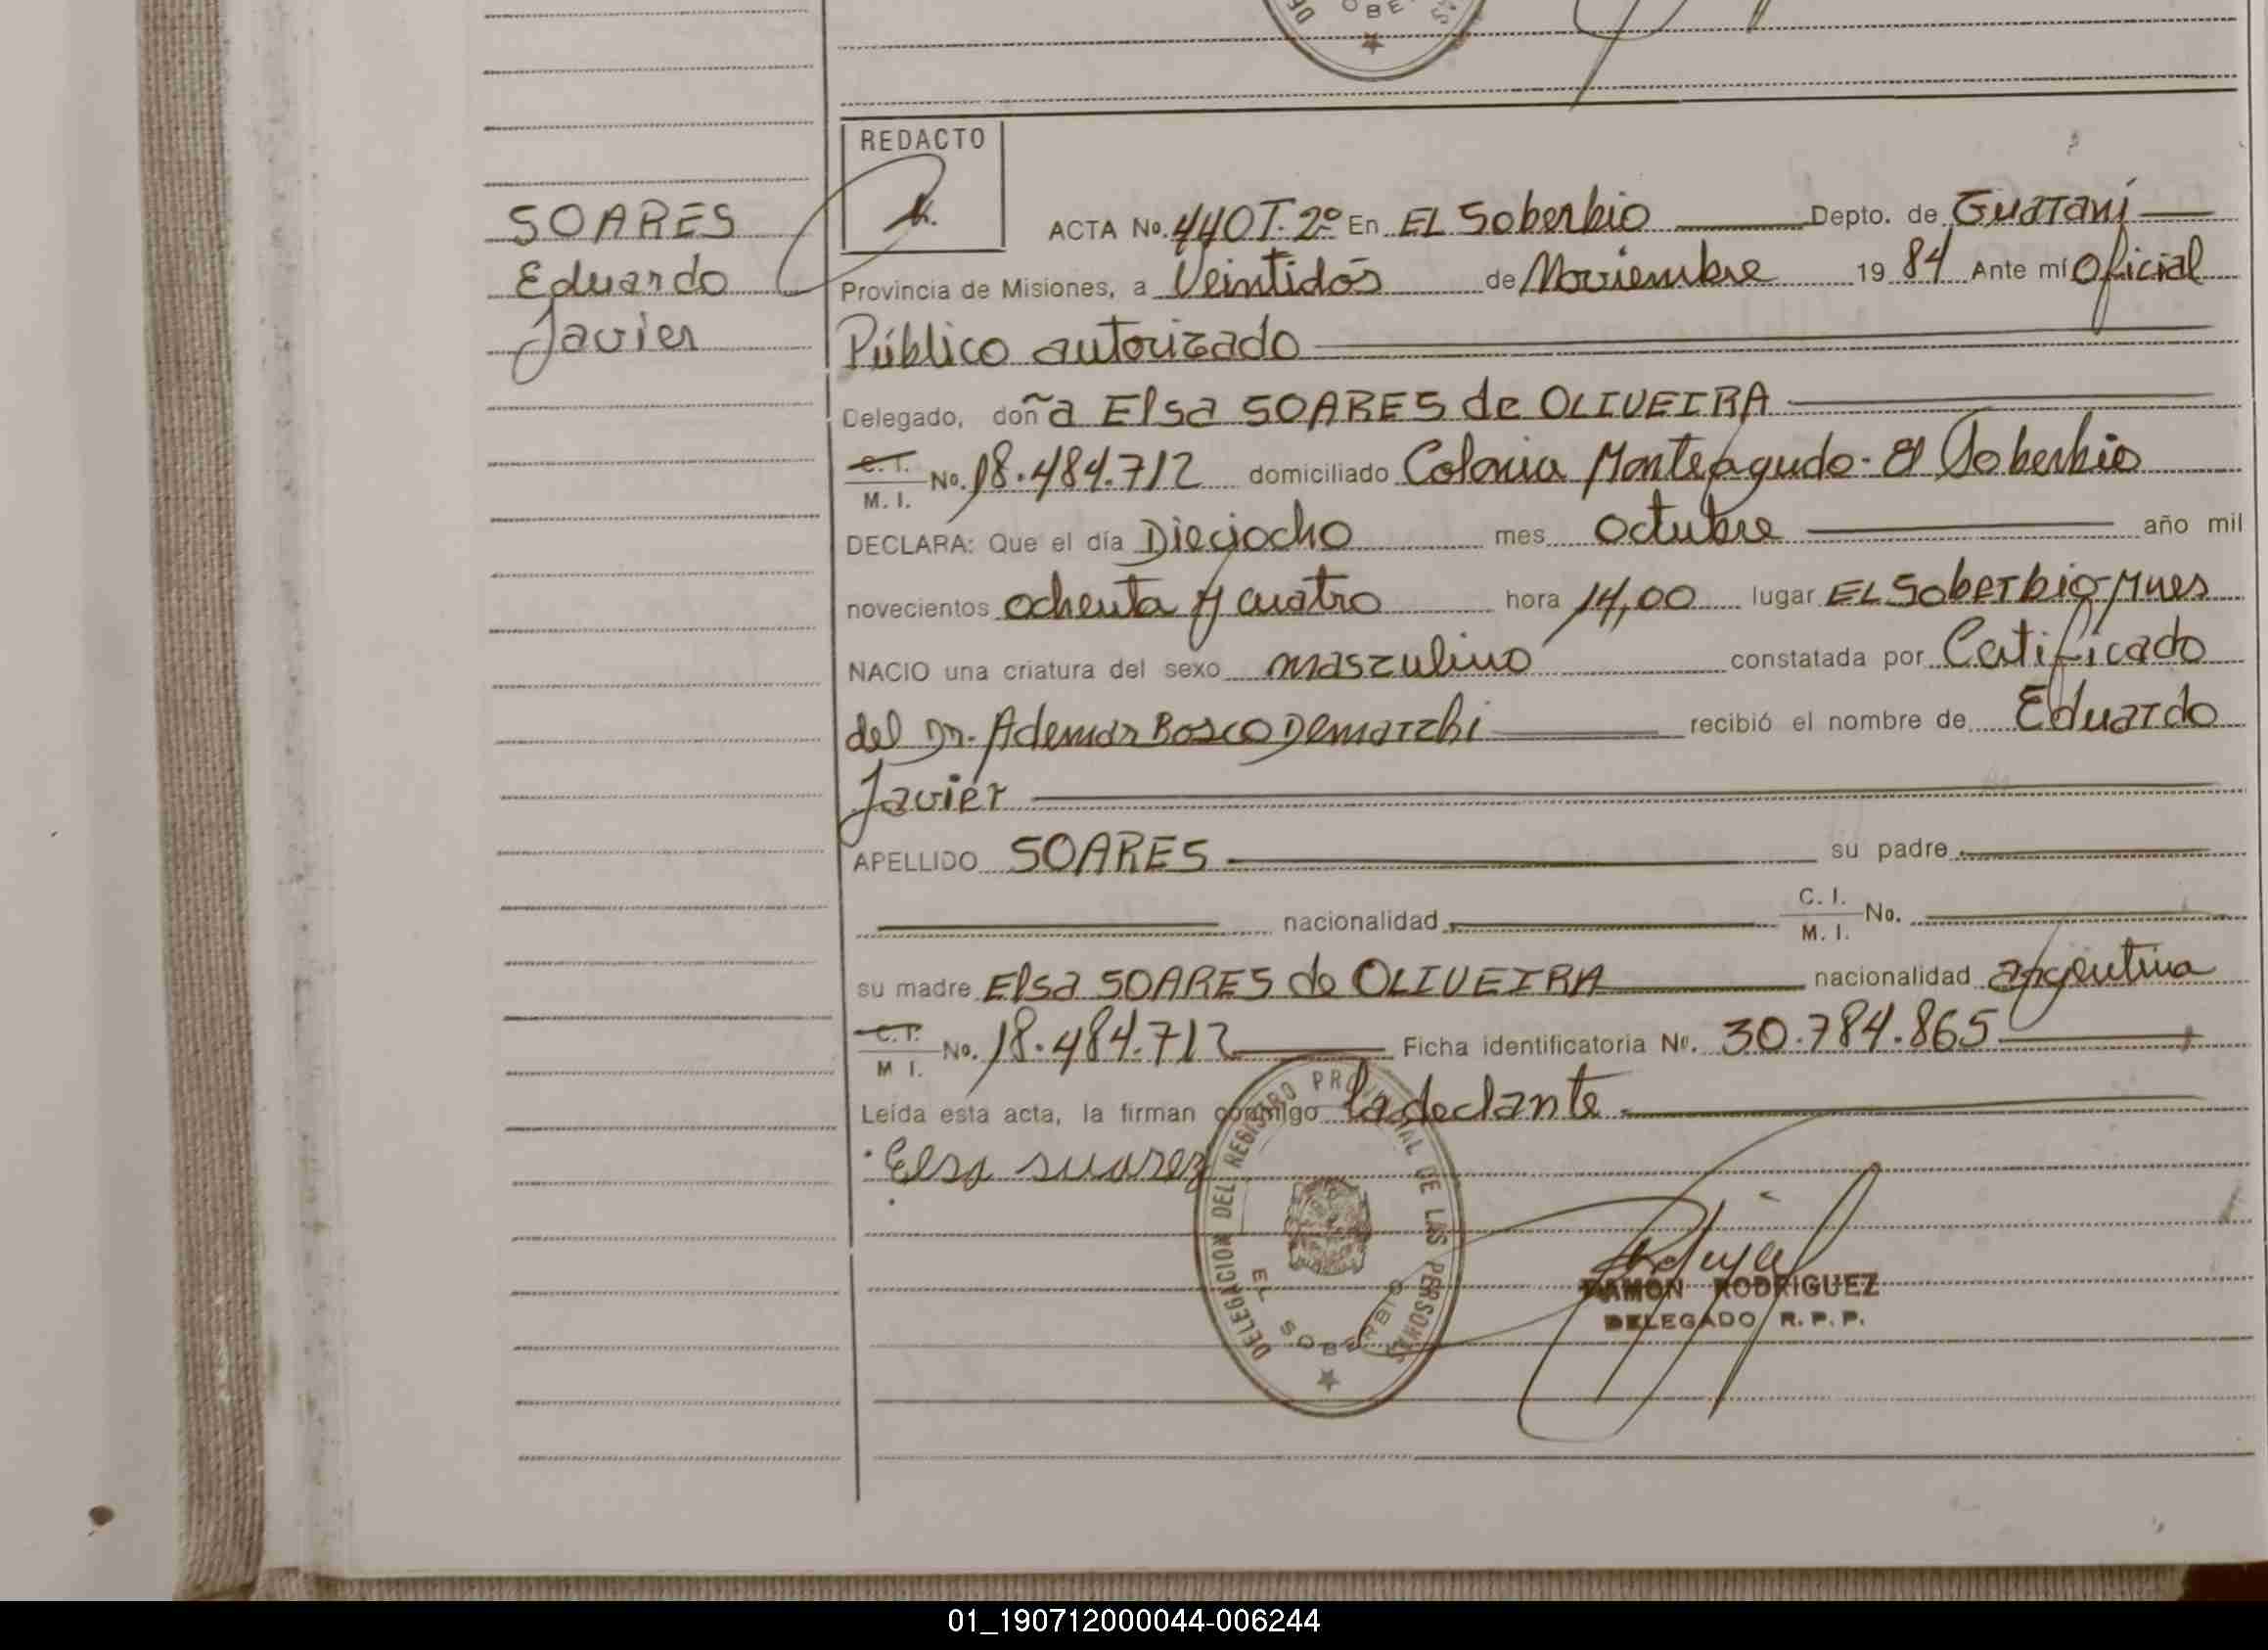 OBE
REDACTO
SOARES
Eduardo
Javier
ACTA No. 440 T. 2º En EL Soberbio Depto. de Guaraní
Provincia de Misiones, a Veintidós de Noviembre 19 84 Ante mí Oficial
Público autorizado
Delegado, doña Elsa SOARES de OLIVEIRA
C.I. / M. I. No. 18.484.712 domiciliado Colonia Monteagudo - El Soberbio
DECLARA: Que el día Dieciocho mes octubre año mil
novecientos ochenta y cuatro hora 14,00 lugar EL Soberbio - Mnes
NACIO una criatura del sexo masculino constatada por Cetificado
del Dr. Ademar Bosco Demarchi recibió el nombre de Eduardo
Javier
APELLIDO SOARES su padre
nacionalidad C. I. / M. I. No.
su madre Elsa SOARES de OLIVEIRA nacionalidad argentina
C.I. / M I. No. 18.484.712 Ficha identificatoria Nº. 30.784.865
Leída esta acta, la firman conmigo la declante
Elsa suarez
DELEGACION DEL REGISTRO PROVINCIAL DE LAS PERSONAS
EL SOBERBIO
RAMON RODRIGUEZ
DELEGADO R. P. P.
01_190712000044-006244